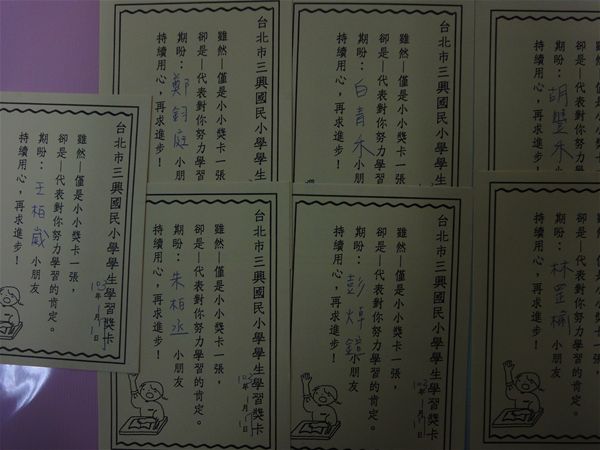 台北市三興國民小學學生
雖然—僅是小小獎卡一張
卻是—代表對你努力學習
期盼：鄭鈞庭 小朋
持續用心，再求進步！
台北市三興國民小學學生
雖然—僅是小小獎卡一張
卻是—代表對你努力學習
期盼：白青禾 小朋
持續用心，再求進步！
雖然—僅是小小獎卡一張
卻是—代表對你努力學習
期盼：胡豐禾 小朋
持續用心，再求進步！
台北市三興國民小學學生學習獎卡
雖然—僅是小小獎卡一張，
卻是—代表對你努力學習的肯定。
期盼：王柏崴 小朋友
持續用心，再求進步！
年 月 日
台北市三興國民小學學生學習獎卡
雖然—僅是小小獎卡一張，
卻是—代表對你努力學習的肯定。
期盼：朱柏丞 小朋友
持續用心，再求進步！
年 月 日
台北市三興國民小學學生學習獎卡
雖然—僅是小小獎卡一張，
卻是—代表對你努力學習的肯定。
期盼：彭焯鍇 小朋友
持續用心，再求進步！
年 月 日
雖然—僅是小小獎卡一張，
卻是—代表對你努力學習的肯定。
期盼：林罡 小朋友
持續用心，再求進步！